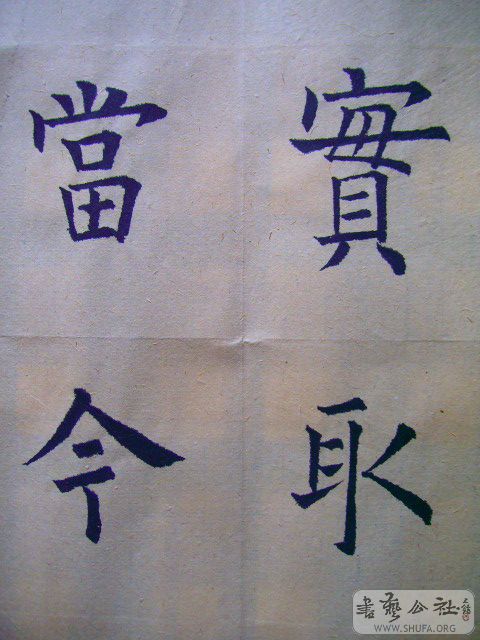 實取
當今
書藝公社
WWW.SHUFA.ORG